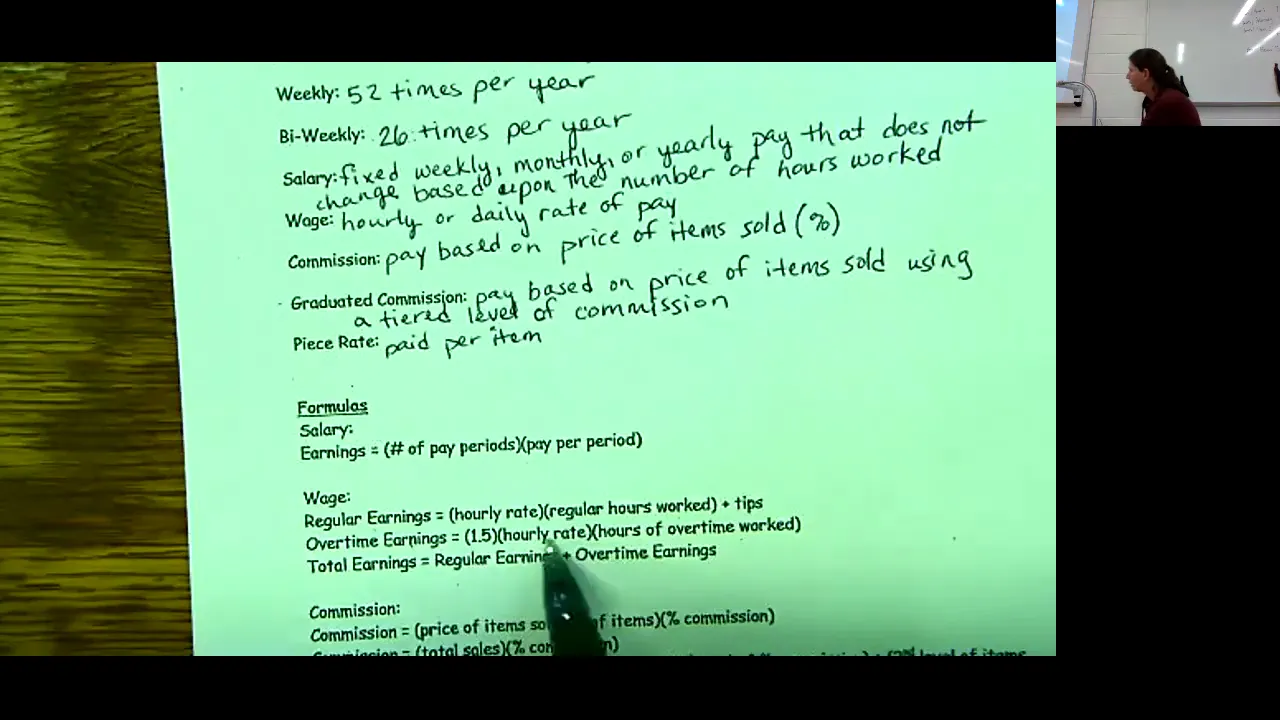 Weekly: 52 times per year
Bi-Weekly: 26 times per year
Salary: fixed weekly, monthly, or yearly pay that does not
change based upon the number of hours worked
Wage: hourly or daily rate of pay
Commission: pay based on price of items sold (%)
Graduated Commission: pay based on price of items sold using
a tiered level of commission
Piece Rate: paid per item
Formulas
Salary:
Earnings = (# of pay periods)(pay per period)
Wage:
Regular Earnings = (hourly rate)(regular hours worked) + tips
Overtime Earnings = (1.5)(hourly rate)(hours of overtime worked)
Total Earnings = Regular Earnin + Overtime Earnings
Commission:
Commission = (price of items so of items)(% commission)
Commission = (total sales)(% con n)
level of items